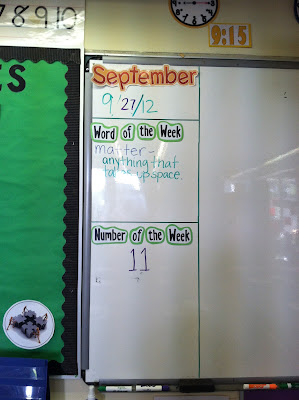 7 8 9 10
ES
9:15
September
9/27/12
Word of the Week
matter -
anything that
takes up space.
Number of the Week
11